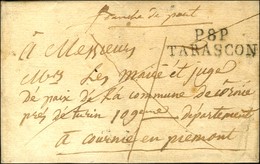 franche de port
P8P
TARASCON
à Messieurs
Mrs Les maire et juge
de paix de La commune de cornié
près de turin 109me département
à cournié en piemont